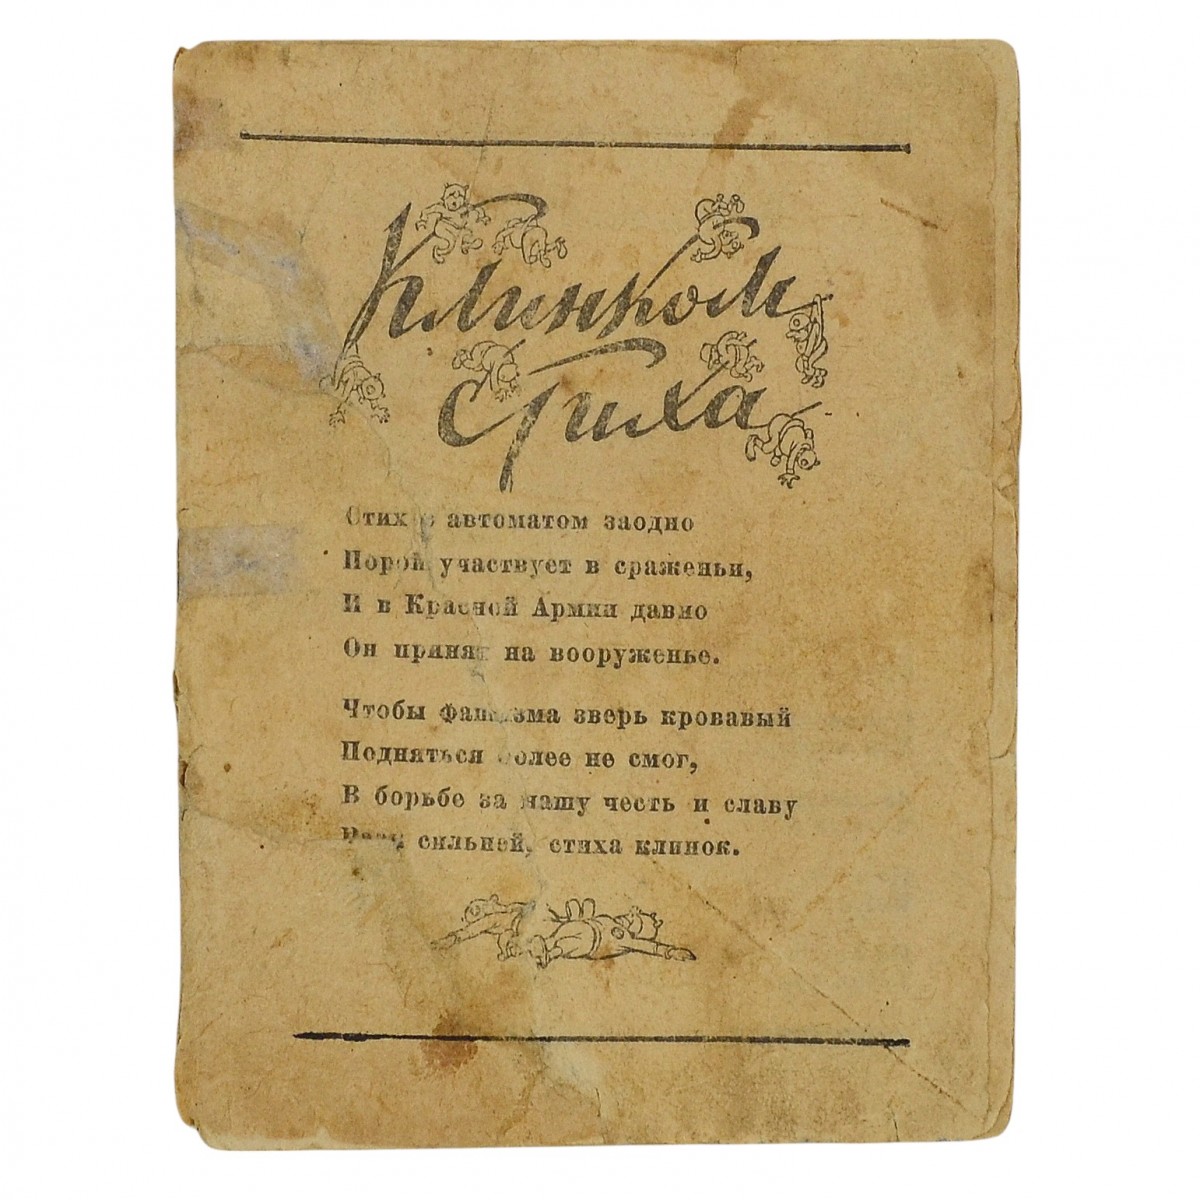 Клинком
стиха
Стих с автоматом заодно
Порой участвует в сраженьи,
И в Красной Армии давно
Он принят на вооруженье.
Чтобы фашизма зверь кровавый
Подняться более не смог,
В борьбе за нашу честь и славу
сильней, стиха клинок.